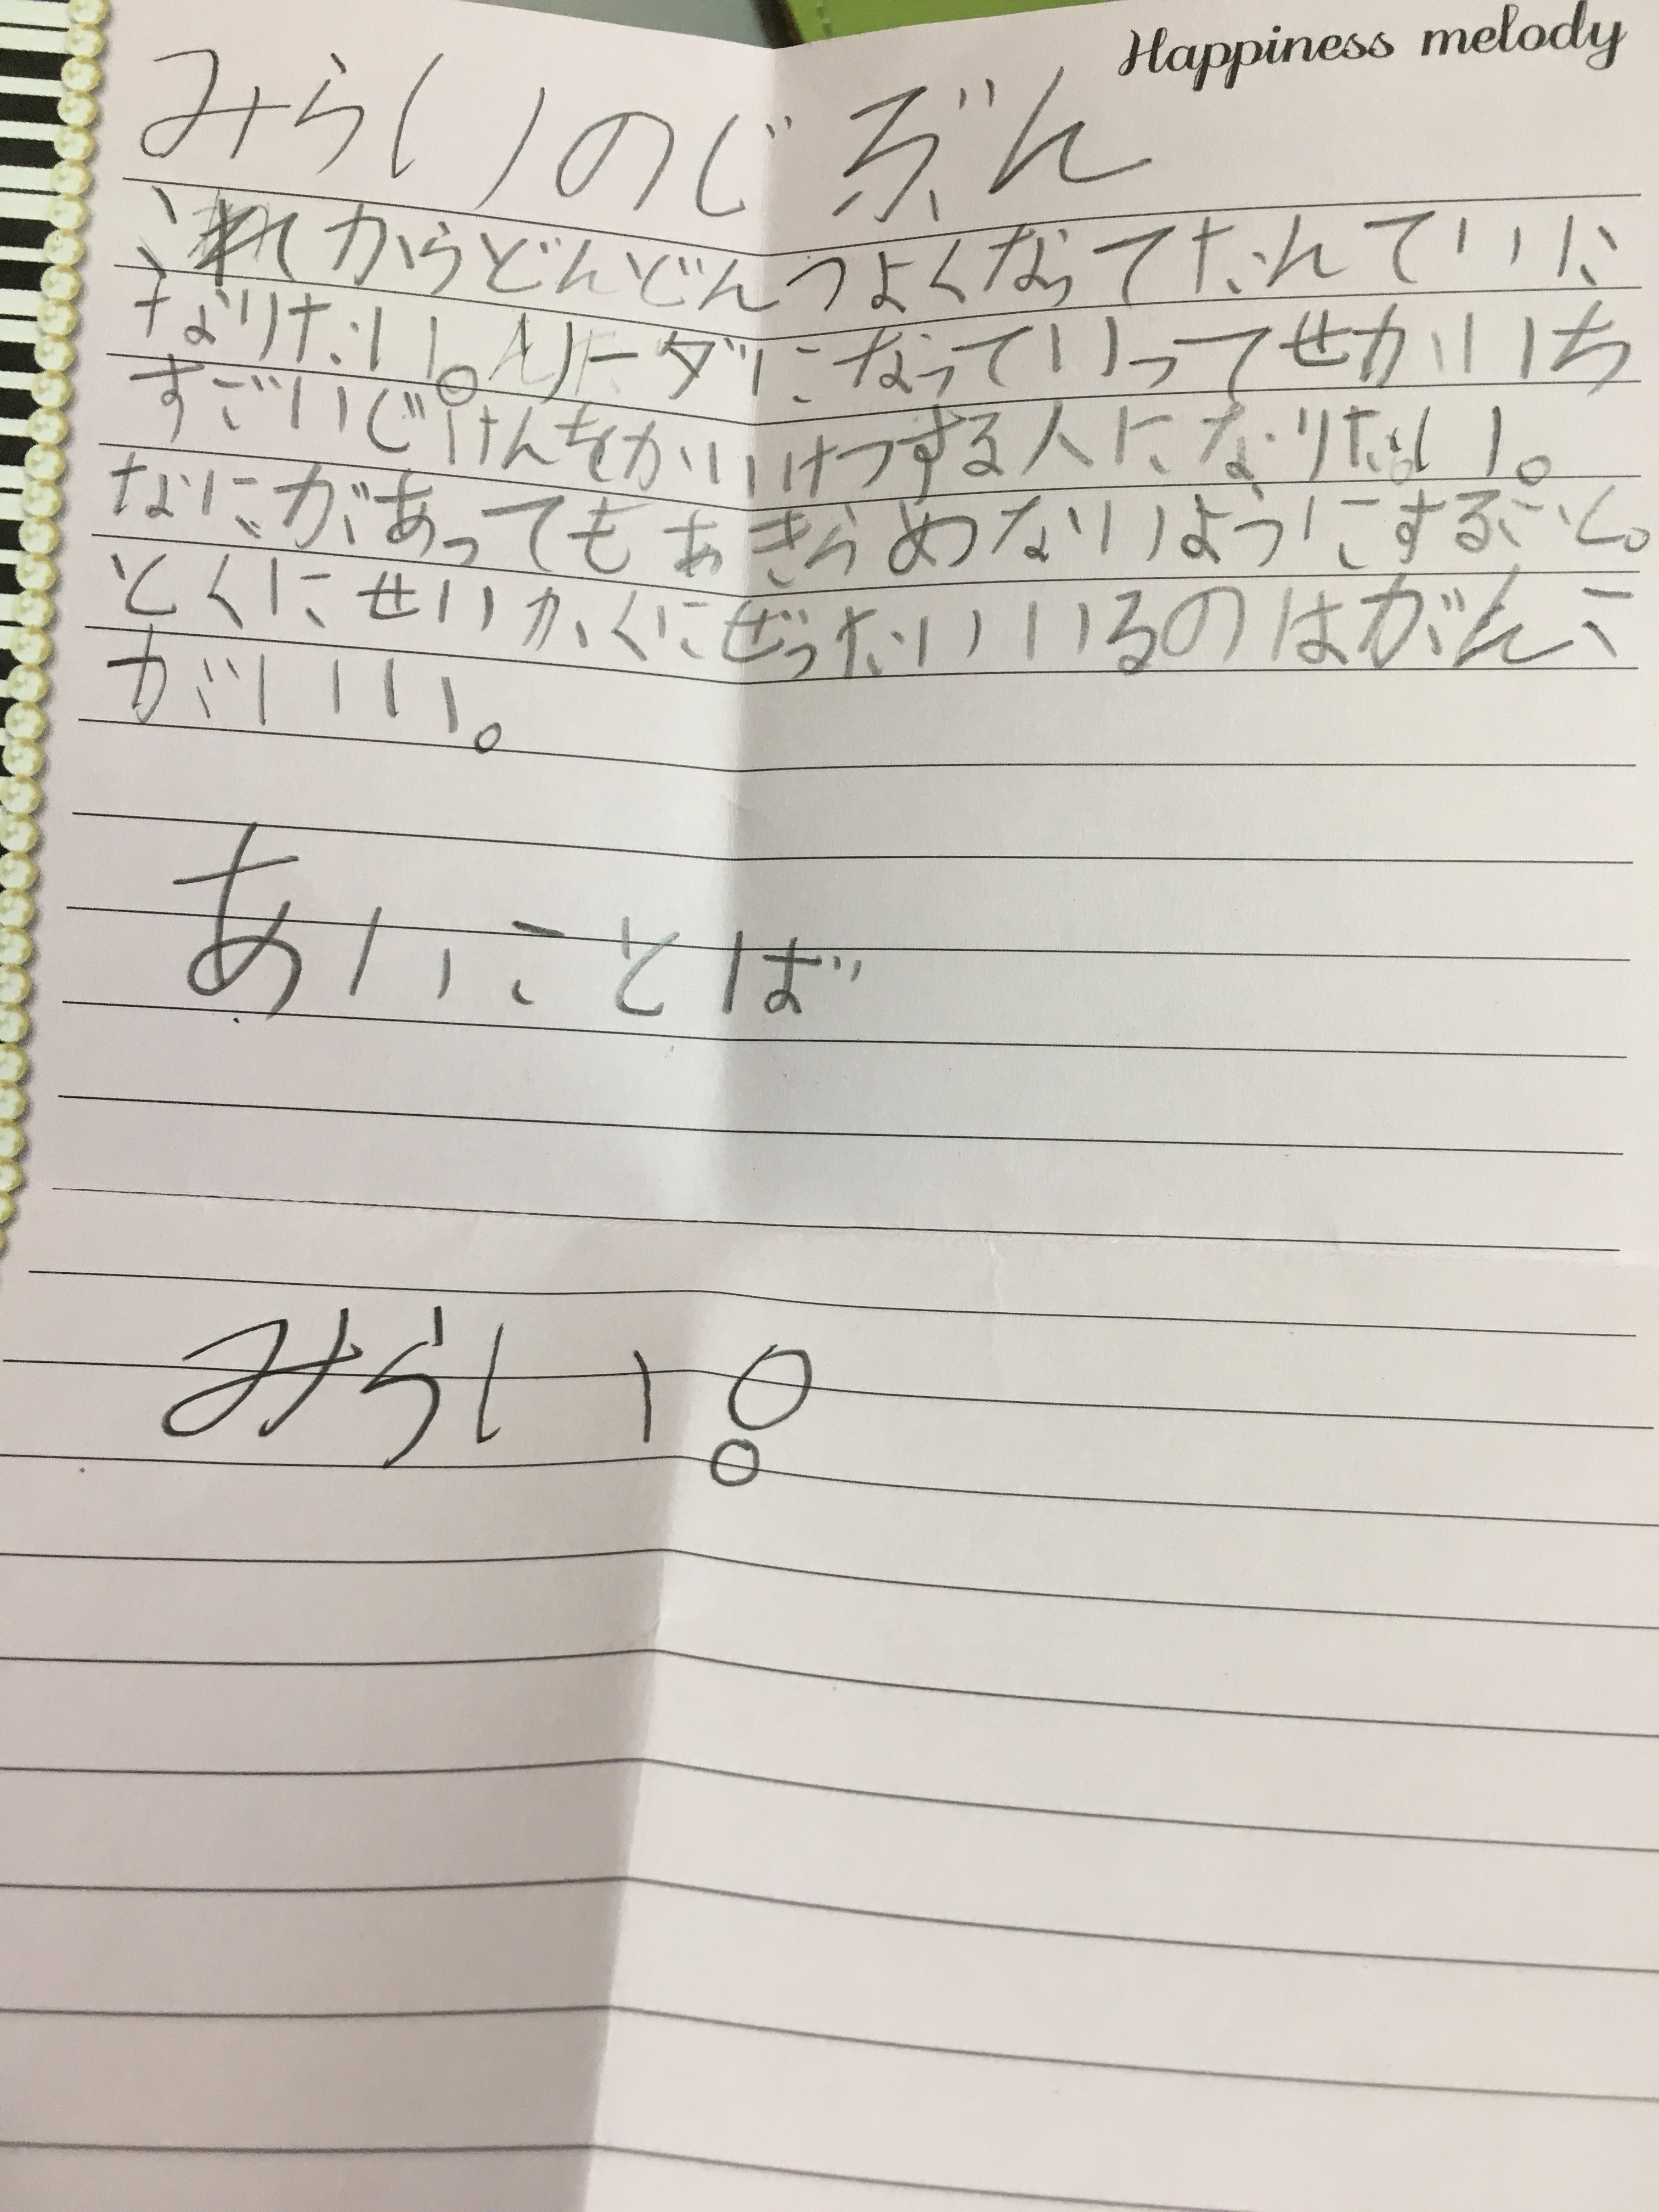 Happiness melody
みらいのじぶん
これからどんどんつよくなってたんていに
なりたい。リーダーになっていってせかいいち
すごいじけんをかいけつする人になりたい。
なにがあってもあきらめないようにすること。
とくにせいかくにぜったいいるのはがんこ
がいい。
あいことば
みらい!。